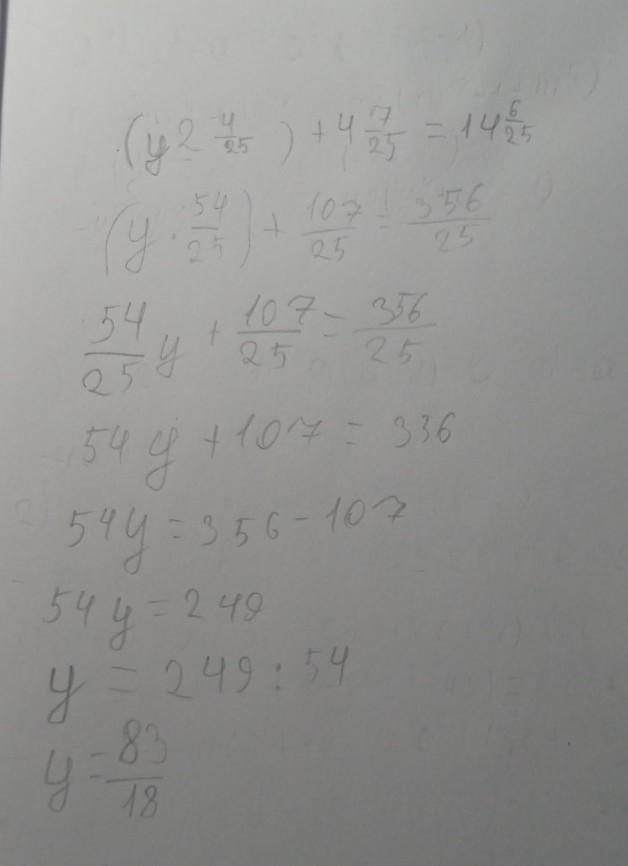 (y 2 4/25) + 4 7/25 = 14 6/25
(y · 54/25) + 107/25 = 356/25
54/25 y + 107/25 = 356/25
54y + 107 = 336
54y = 356 - 107
54y = 249
y = 249 : 54
y = 83/18